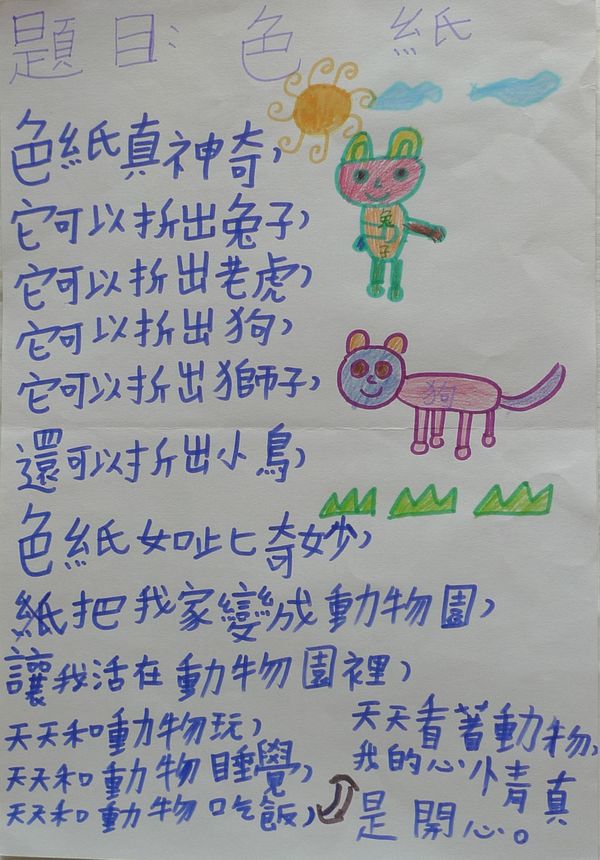 題目：色紙
色紙真神奇，
它可以折出兔子，
它可以折出老虎，
它可以折出狗，
它可以折出獅子，
還可以折出小鳥，
色紙如此奇妙，
紙把我家變成動物園，
讓我活在動物園裡，
天天和動物玩，
天天和動物睡覺，
天天和動物吃飯，
天天看著動物，
我的心情真
是開心。
兔
子
狗